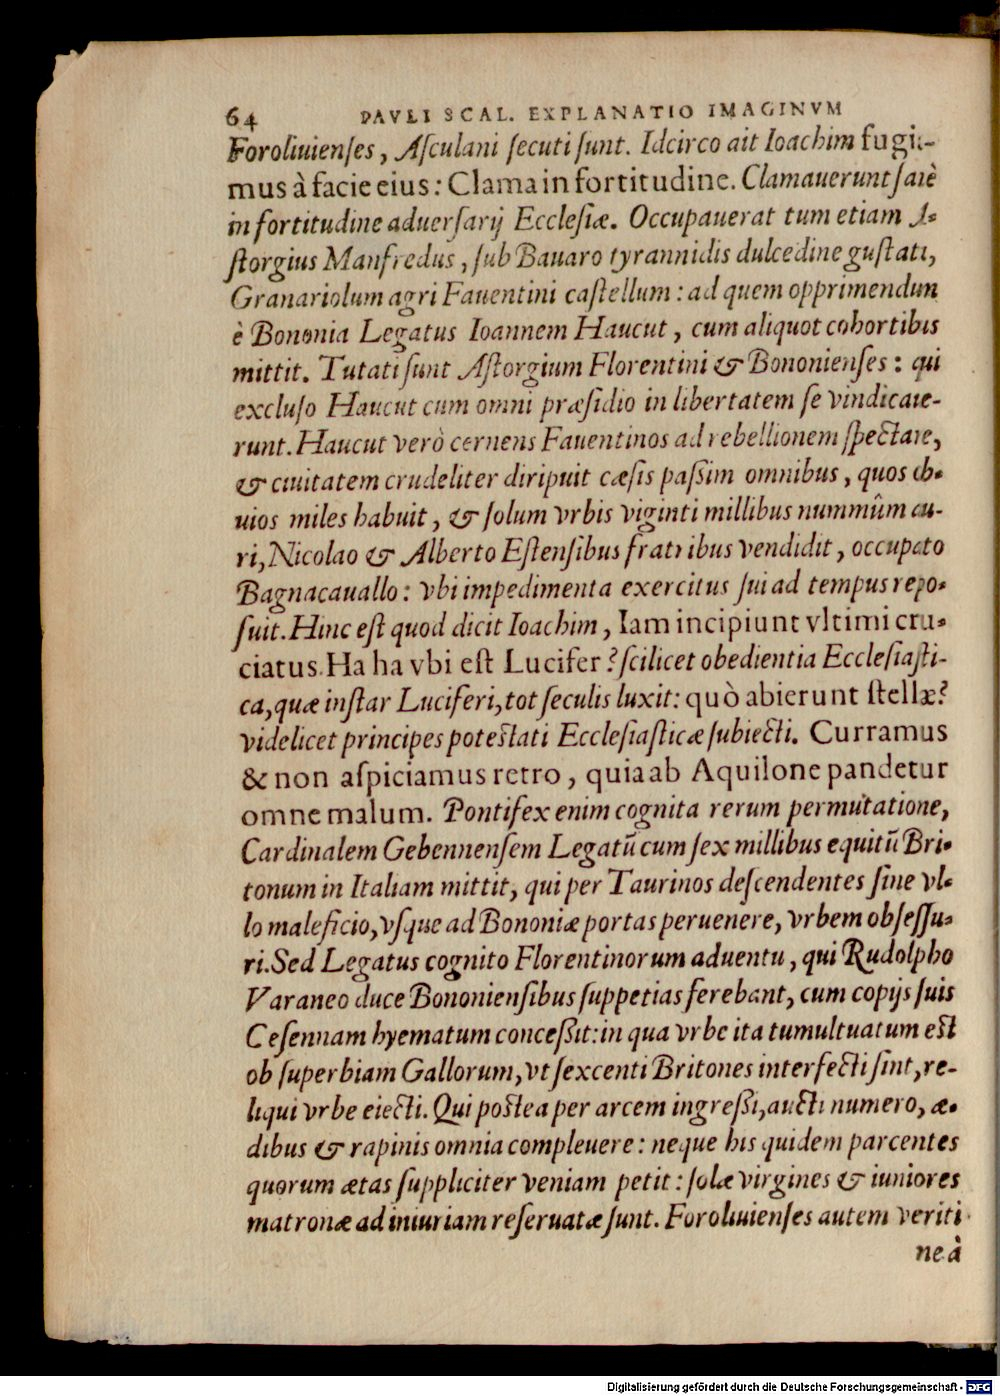 64 PAVLI SCAL. EXPLANATIO IMAGINVM
Foroliuienſes, Aſculani ſecuti ſunt. Idcirco ait Ioachim fugi-
mus à facie eius: Clama in fortitudine. Clamauerunt ſanè
in fortitudine aduerſarij Eccleſiæ. Occupauerat tum etiam A-
ſtorgius Manfredus, ſub Bauaro tyrannidis dulcedine guſtati,
Granariolum agri Fauentini caſtellum: ad quem opprimendun
è Bononia Legatus Ioannem Haucut, cum aliquot cohortibus
mittit. Tutati ſunt Aſtorgium Florentini & Bononienſes: qui
excluſo Haucut cum omni præſidio in libertatem ſe vindicaue-
runt. Haucut verò cernens Fauentinos ad rebellionem ſpectare,
& ciuitatem crudeliter diripuit cæſis paſsim omnibus, quos ob-
uios miles habuit, & ſolum vrbis viginti millibus nummûm au-
ri, Nicolao & Alberto Eſtenſibus fratribus vendidit, occupato
Bagnacauallo: vbi impedimenta exercitus ſui ad tempus repo-
ſuit. Hinc eſt quod dicit Ioachim, Iam incipiunt vltimi cru-
ciatus. Ha ha vbi eſt Lucifer? ſcilicet obedientia Eccleſiaſti-
ca, quæ inſtar Luciferi, tot ſeculis luxit: quò abierunt ſtellæ?
videlicet principes poteſtati Eccleſiaſticæ ſubiecti. Curramus
& non aſpiciamus retro, quia ab Aquilone pandetur
omne malum. Pontifex enim cognita rerum permutatione,
Cardinalem Gebennenſem Legatũ cum ſex millibus equitũ Bri-
tonum in Italiam mittit, qui per Taurinos deſcendentes ſine vl-
lo maleficio, vſque ad Bononiæ portas peruenere, vrbem obſeſſu-
ri. Sed Legatus cognito Florentinorum aduentu, qui Rudolpho
Varaneo duce Bononienſibus ſuppetias ferebant, cum copijs ſuis
Ceſennam hyematum conceſsit: in qua vrbe ita tumultuatum eſt
ob ſuperbiam Gallorum, vt ſexcenti Britones interfecti ſint, re-
liqui vrbe eiecti. Qui poſtea per arcem ingreſsi, aucti numero, æ-
dibus & rapinis omnia compleuere: neque his quidem parcentes
quorum ætas ſuppliciter veniam petit: ſolæ virgines & iuniores
matronæ ad iniuriam reſeruatæ ſunt. Foroliuienſes autem veriti
ne à
Digitalisierung gefördert durch die Deutsche Forschungsgemeinschaft - DFG